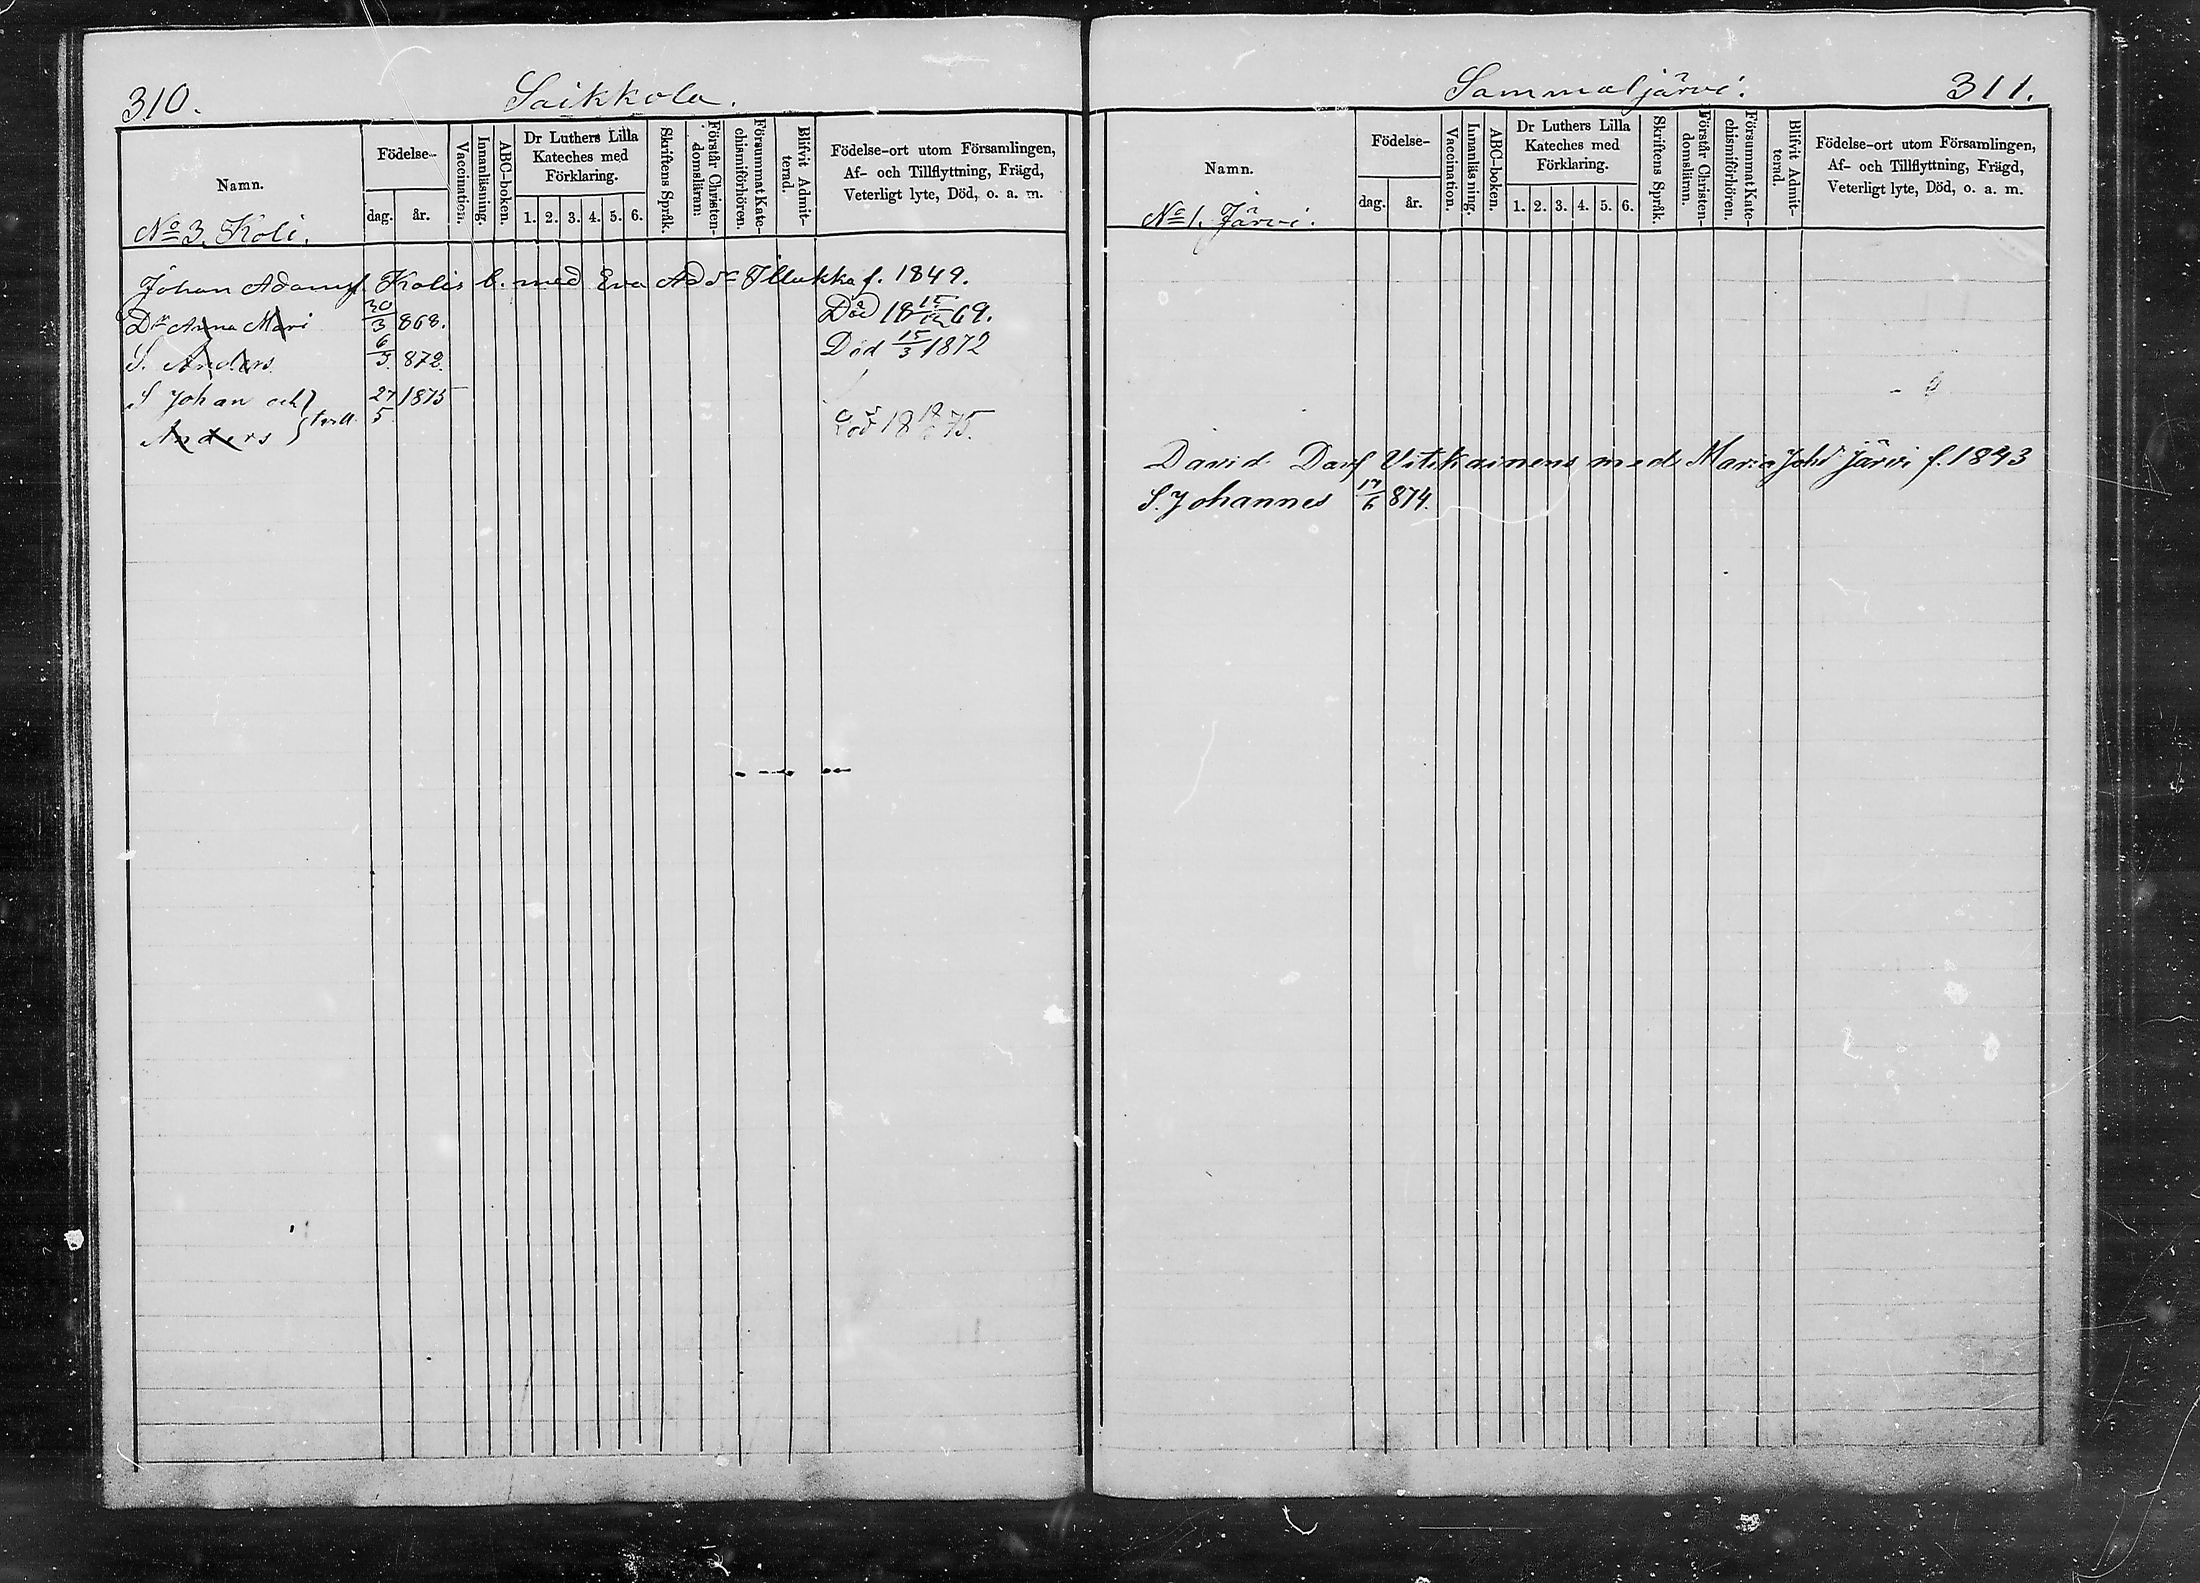 310.
Saikkola.
Namn.
Födelse-
dag.
år.
Vaccination.
Innanläsning.
ABC-boken.
Dr Luthers Lilla
Kateches med
Förklaring.
1. 2. 3. 4. 5. 6.
Skriftens Språk.
Förstår Christen-
domsläran.
Försummat Kate-
chismiförhören.
Blifvit Admit-
terad.
Födelse-ort utom Församlingen,
Af- och Tillflyttning, Frägd,
Veterligt lyte, Död, o. a. m.
No 3. Koli.
Johan Adamsf Kolis b. med Eva Ad dr Illukka f. 1849.
Dr Anna Mari 20/3 868. Död 18 15/12 69.
S. Anders 6/3 872. Död 15/3 1872
S Johan och 27/5 1875
Anders } tvill. Död 18 75.
Sammaljärvi.
311.
Namn.
Födelse-
dag.
år.
Vaccination.
Innanläsning.
ABC-boken.
Dr Luthers Lilla
Kateches med
Förklaring.
1. 2. 3. 4. 5. 6.
Skriftens Språk.
Förstår Christen-
domsläran.
Försummat Kate-
chismiförhören.
Blifvit Admit-
terad.
Födelse-ort utom Församlingen,
Af- och Tillflyttning, Frägd,
Veterligt lyte, Död, o. a. m.
No 1. Järvi.
David Davf Vitikainens med Maria Johd Järvi f. 1843
S. Johannes 17/6 874.